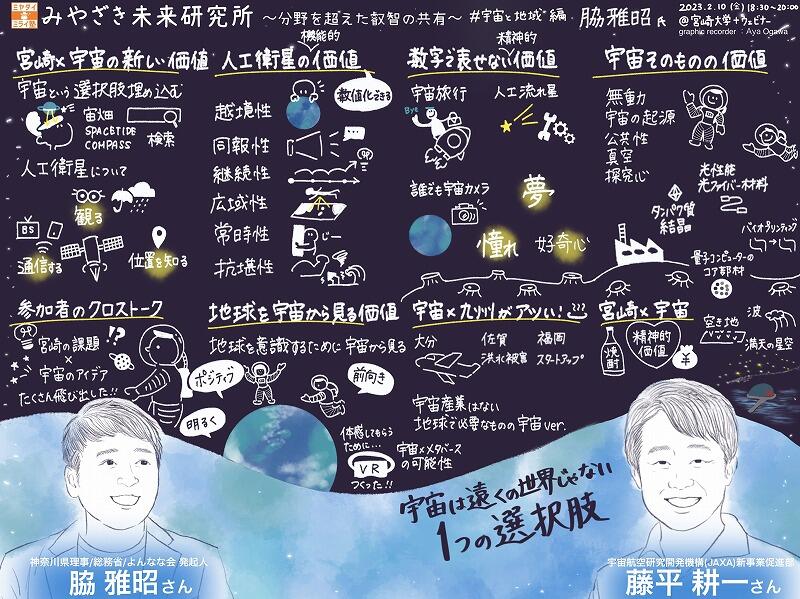 ミヤダイ
ミライ塾
みやざき未来研究所 ～分野を超えた叡智の共有～ #宇宙と地域 編 脇 雅昭 氏
2023.2.10 (金) 18:30~20:00
@宮崎大学+ウェビナー
graphic recorder : Aya Ogawa
宮崎×宇宙の新しい価値
宇宙という選択肢埋め込む
宙畑
SPACETIDE
COMPASS
検索
人工衛星について
観る
BS
通信する
位置を知る
機能的
人工衛星の価値
数値化できる
越境性
同報性
継続性
広域性
常時性
じー
抗堪性
精神的
数字で表せない価値
宇宙旅行
人工流れ星
Bye
誰でも宇宙カメラ
夢
憧れ
好奇心
宇宙そのものの価値
無重力
宇宙の起源
公共性
真空
探究心
光性能
光ファイバー材料
タンパク質
結晶
バイオプリンティング
量子コンピューターの
コア部材
参加者のクロストーク
宮崎の課題
×
宇宙のアイデア
たくさん飛び出した!!
!?
地球を宇宙から見る価値
地球を意識するために宇宙から見る
ポジティブ
前向き
明るく
体感してもらう
ために…
VR
つくった!!
宇宙×メタバース
の可能性
宇宙×九州がアツい!
大分
佐賀
洪水被害
福岡
スタートアップ
宇宙産業はない
地球で必要なものの宇宙ver.
宮崎×宇宙
焼酎
精神的
価値
空き地
波
満天の星空
宇宙は遠くの世界じゃない
1つの選択肢
神奈川県理事/総務省/よんなな会 発起人
脇 雅昭さん
宇宙航空研究開発機構(JAXA)新事業促進部
藤平 耕一さん